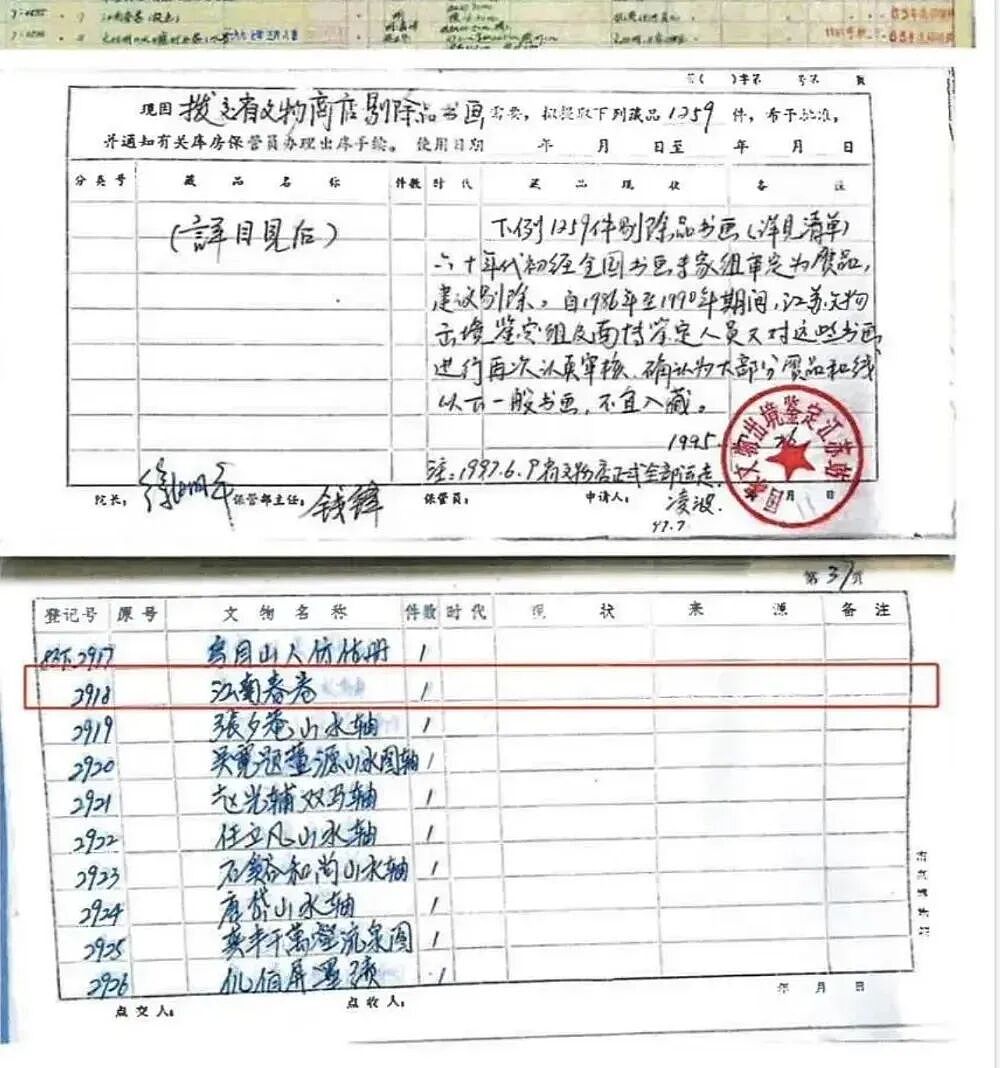 第( )字第 号第 页
现因 拨交省文物商店剔除品书画 需要，拟提取下列藏品 1259 件，希予批准，
并通知有关库房保管员办理出库手续。 使用日期 年 月 日至 年 月 日
分类号 藏品名称 件数 时代 藏品现状 备注
(詳目見后)
下列1259件剔除品书画(详见清单)
六十年代初经全国书画专家组审定为赝品，
建议剔除。自1986年至1990年期间，江苏文物
出境鉴定组及南博鉴定人员又对这些书画
进行再次认真审核，确认为大部分赝品和线
以下一般书画，不宜入藏。
1995.
注：1997.6.9省文物店正式全部运走
院长： 徐湖平 保管部主任： 钱锋 保管员： 申请人： 凌波 月 日
97.7.
国家文物出境鉴定江苏站
第37页
登记号 原号 文物名称 件数 时代 现状 来源 备注
2917 乌目山人仿 册 1
2918 江南春卷 1
2919 張夕菴山水轴 1
2920 吴寬题董源山水图轴 1
2921 赵光辅双马轴 1
2922 任立凡山水轴 1
2923 石谿和尚山水轴 1
2924 唐岱山水轴 1
2925 千萬壑流泉图 1
2926 屏墨 1
年 月 日
点交人： 点收人：